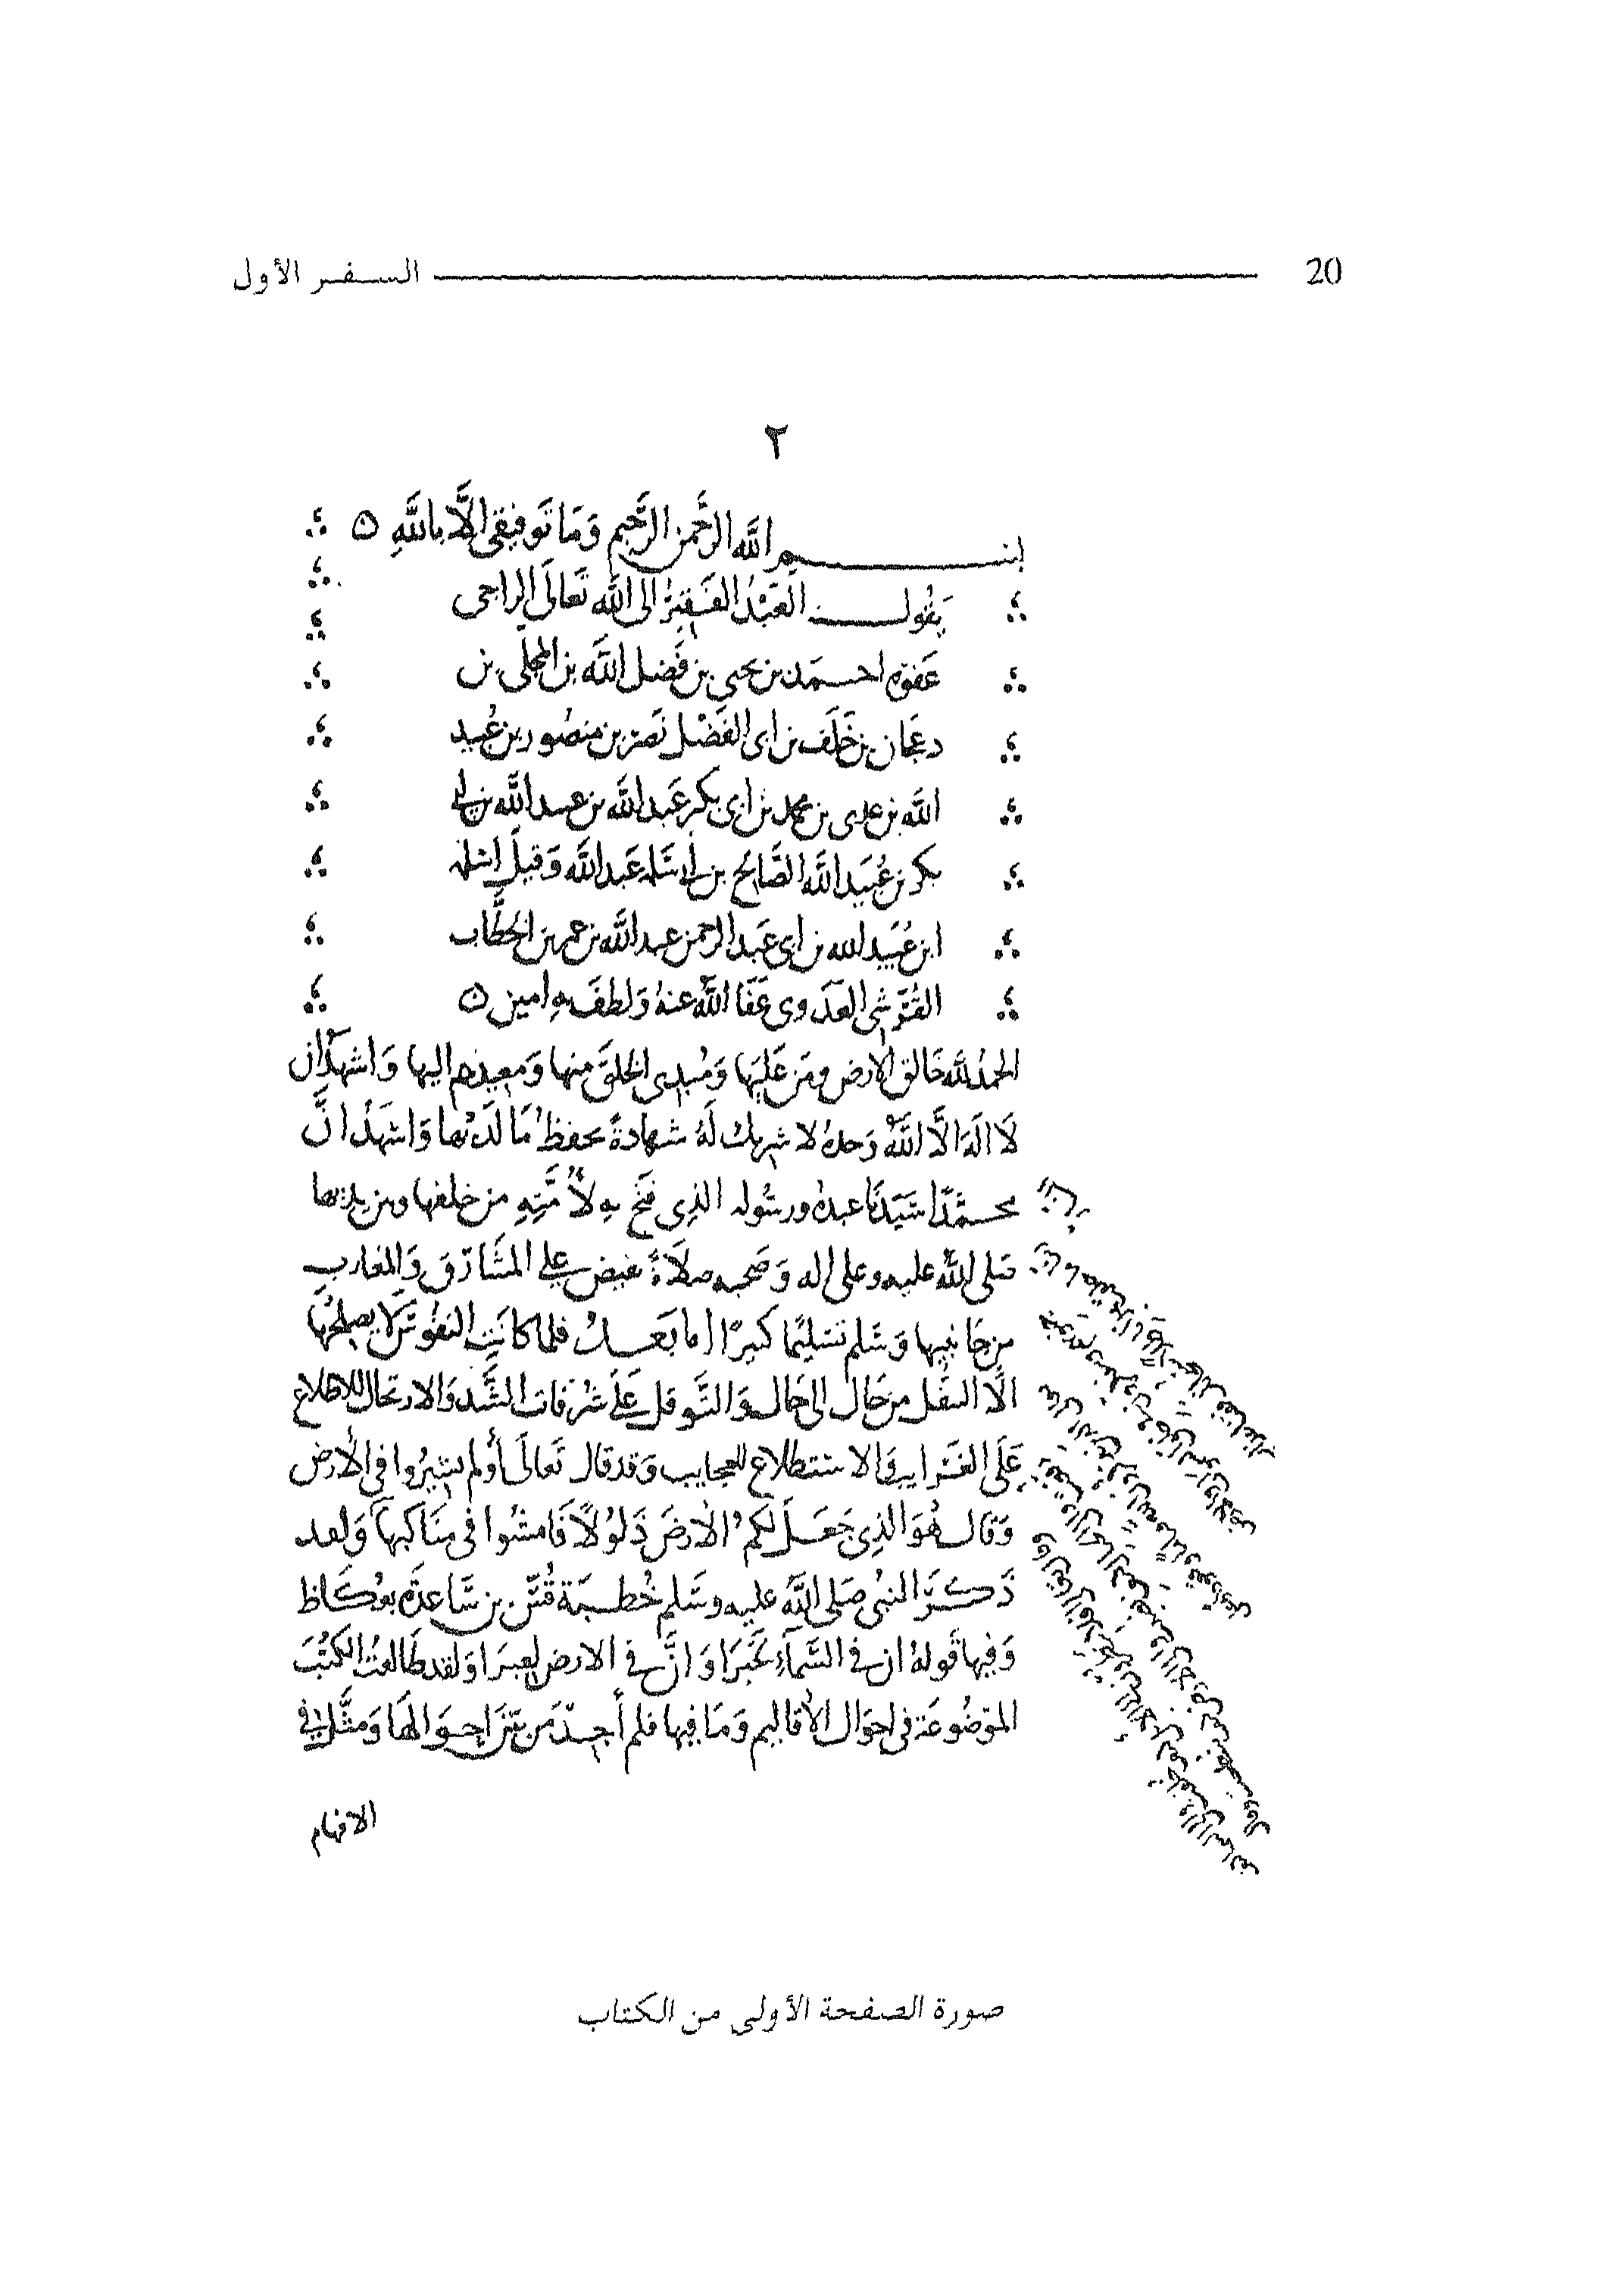 20 السفر الأول
٢
بسم الله الرحمن الرحيم وَمَا تَوفيقى إلَّا بالله
يَقُول العَبْدُ الفَقيرُ الى الله تَعَالَى الراجى
عَفوه احمَد بن يحيى بن فَضل الله بن المجلّى بن
دعجان بن خَلَف بن ابى الفَضْل نَصر بن منصُور بن عُبيد
الله بن على بن محمد بن أبى بكر عَبد الله بن عبيد الله بن ابى
بكر بن عُبَيد الله الصَّالح بن ابى سَلمة عَبد الله وَقيل سلمة
ابن عُبَيد الله بن ابى عَبد الرحمن عبد الله بن عمر بن الخطَّاب
القُرَشى العَدَوى عَفَا اللَّهُ عنهُ وَلطفَ به امين
الحمدُ لله خَالق الارض ومَن عَليَها وَمُبدى الخلق منها وَمعيدهم اليها وَاشهدُ ان
لَا الَهَ الَّا اللَّهُ وَحدهُ لا شريك لَهُ شهادةً يحفظُ مَا لدَيها وَاشهَدُ انَّ
محمّدًا سَيّدَنَا عبدهُ ورسُوله الذِى فتح به لأمَّتِهِ من خلفها ومن يديها
صَلى اللَّهُ عليه وعلى اله وَصَحبه صلَاةً تفيض على المشَارق وَالمغارب
من جَانبيها وَسَلم تسليمًا كبيرًا أما بَعدُ فلما كانَت النفُوسُ لا يصلحُها
الَّا التنقل من حَال الى حَال وَالتَّوقل عَلَى شرُفات الشَّد وَالارتحال للاطلاع
عَلَى الغَرَايب وَالاستطلاع للعجايب وَقد قال تَعَالَى أولم يسيرُوا فى الأرض
وَقال هُوَ الذِى جَعَلَ لكُم الأرضَ ذَلُولًا فَامشُوا فى منَاكبهَا وَلقد
ذَكرَ النبىُ صَلى اللَّهُ عليه وسَلم خُطبَة قُسّ بن سَاعدَة بعُكَاظ
وَفيها قَولهُ ان فى السَّمآءِ لخَبَرا وَانَّ فى الارض لعِبَرا وَلقد طَالعتُ الكتُبَ
المَوضُوعَة فى احوَال الأقاليم وَمَا فيها فلم أجِدْ مَن بَيّنَ احوَالهَا وَمثَّلها فى
الافهام
صورة الصفحة الأولى من الكتاب